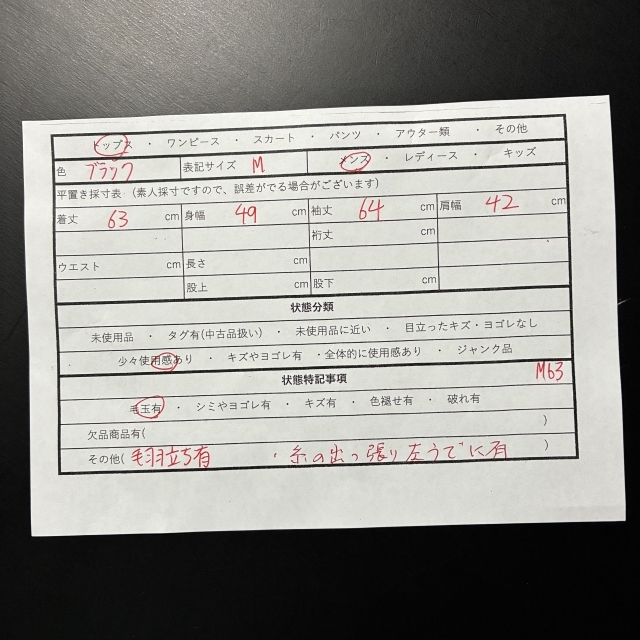 トップス ・ ワンピース ・ スカート ・ パンツ ・ アウター類 ・ その他
色 ブラック 表記サイズ M メンズ ・ レディース ・ キッズ
平置き採寸表 (素人採寸ですので、誤差がでる場合がございます)
着丈 63 cm 身幅 49 cm 袖丈 64 cm 肩幅 42 cm
裄丈 cm
ウエスト cm 長さ cm
股上 cm 股下 cm
状態分類
未使用品 ・ タグ有(中古品扱い) ・ 未使用品に近い ・ 目立ったキズ・ヨゴレなし
少々使用感あり ・ キズやヨゴレ有 ・全体的に使用感あり ・ ジャンク品
状態特記事項 M63
毛玉有 ・ シミやヨゴレ有 ・ キズ有 ・ 色褪せ有 ・ 破れ有
欠品商品有( )
その他( 毛羽立ち有 ・糸の出っ張り左うでに有 )